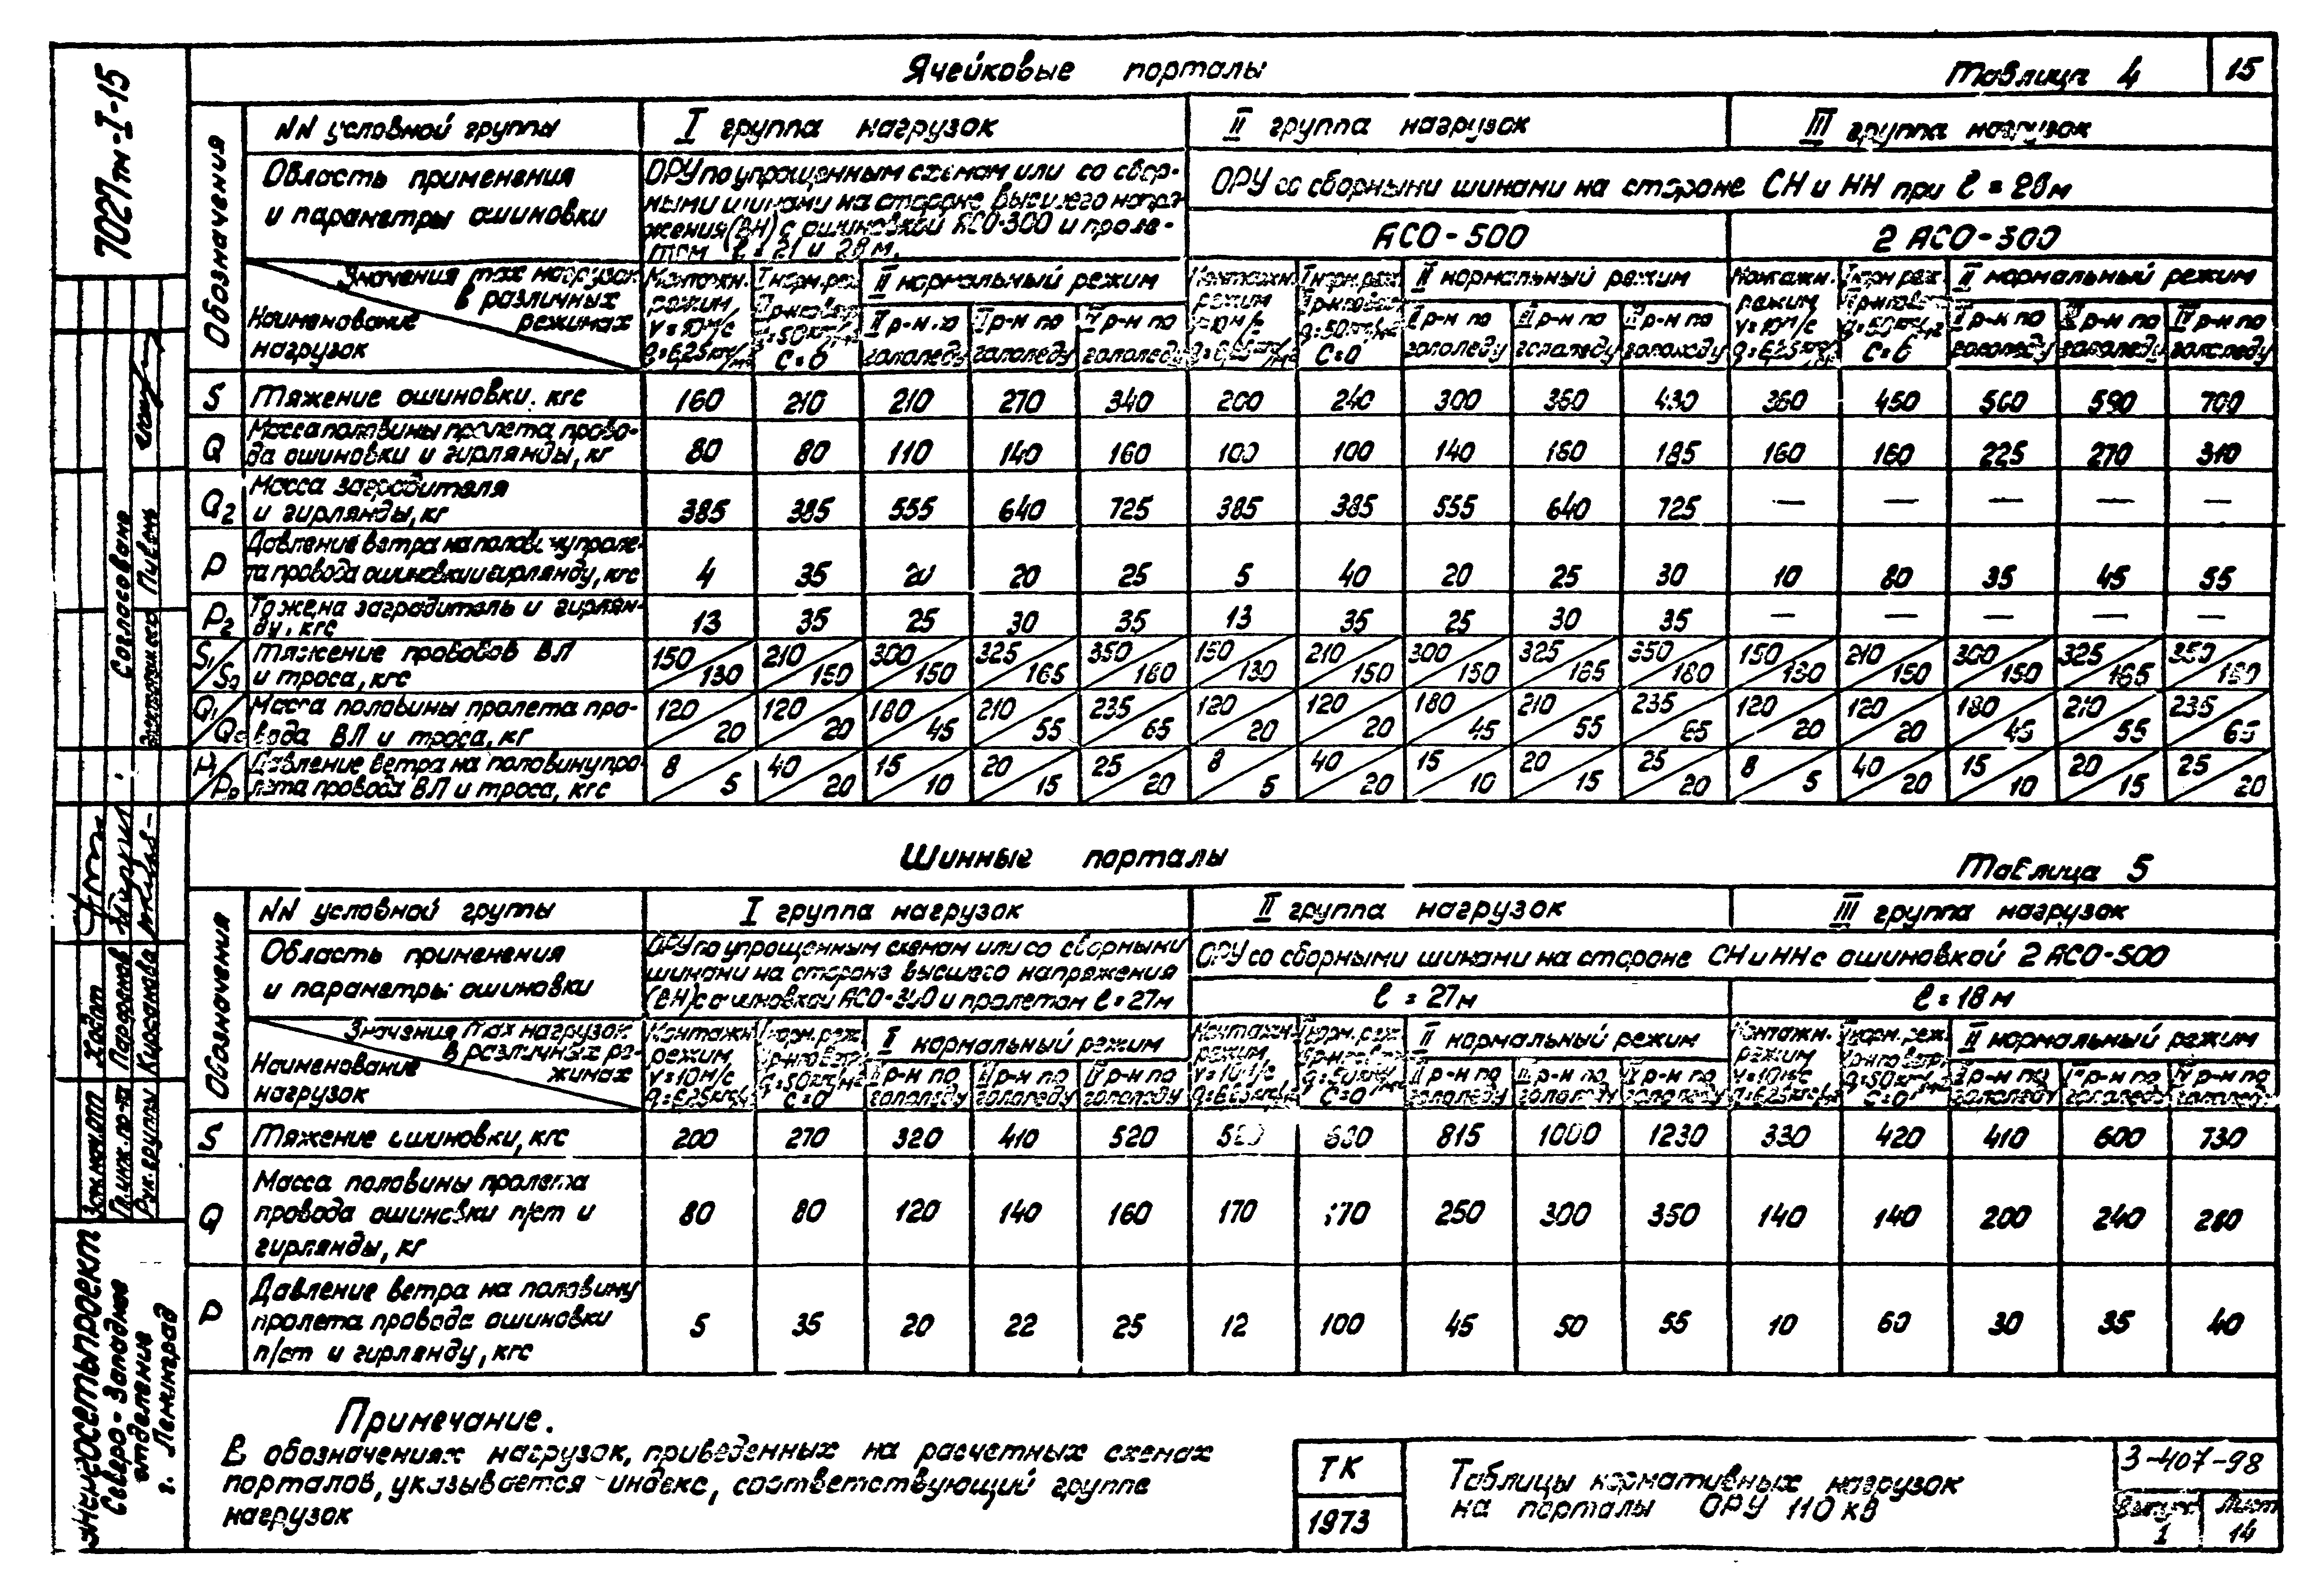 Ячейковые порталы
Таблица 4
15
7027тм-I-15
Обозначения
NN условной группы
I группа нагрузок
II группа нагрузок
III группа нагрузок
Область применения
и параметры ошиновки
ОРУ по упрощенным схемам или со сбор-
ными шинами на стороне высшего напря-
жения (ВН) с ошиновкой АСО-300 и проле-
том ℓ = 21 и 28 м.
ОРУ со сборными шинами на стороне СН и НН при ℓ = 28м
АСО-500
2 АСО-500
Значения max нагрузок
в различных
режимах
Наименование
нагрузок
Монтажн. режим V=10м/с q=6,25кг/м²
I норм. реж. q=50кг/м² C=0
II нормальный режим
II р-н по гололеду
III р-н по гололеду
IV р-н по гололеду
Монтажн. режим
II нормальный режим
р-н по гололеду
р-н по гололеду
р-н по гололеду
Монтажн. режим V=10м/с
II нормальный режим
р-н по гололеду
р-н по гололеду
IV р-н по гололеду
S Тяжение ошиновки. кгс 160 210 210 270 340 200 240 300 360 430 360 450 500 590 700
Q Масса половины пролета прово-
да ошиновки и гирлянды, кг 80 80 110 140 160 100 100 140 160 185 160 160 225 270 310
Q2 Масса заградителя
и гирлянды, кг 385 385 555 640 725 385 385 555 640 725 — — — — —
P Давление ветра на половину проле-
та провода ошиновки и гирлянду, кгс 4 35 20 20 25 5 40 20 25 30 10 80 35 45 55
P2 То же на заградитель и гирлян-
ду, кгс 13 35 25 30 35 13 35 25 30 35 — — — — —
S1/S0 Тяжение проводов ВЛ
и троса, кгс 150/130 210/150 300/150 325/165 350/180 150/130 210/150 300/150 325/165 350/180 150/130 210/150 300/150 325/165 350/180
Q1/Q0 Масса половины пролета про-
вода ВЛ и троса, кг 120/20 120/20 180/45 210/55 235/65 120/20 120/20 180/45 210/55 235/65 120/20 120/20 180/45 210/55 235/65
P1/P0 Давление ветра на половину про-
лета провода ВЛ и троса, кгс 8/5 40/20 15/10 20/15 25/20 8/5 40/20 15/10 20/15 25/20 8/5 40/20 15/10 20/15 25/20
Шинные порталы
Таблица 5
Обозначения
NN условной группы
I группа нагрузок
II группа нагрузок
III группа нагрузок
Область применения
и параметры ошиновки
ОРУ по упрощенным схемам или со сборными
шинами на стороне высшего напряжения
(ВН) с ошиновкой АСО-300 и пролетом ℓ=27м
ОРУ со сборными шинами на стороне СН и НН с ошиновкой 2 АСО-500
ℓ = 27м
ℓ = 18 м
Значения max нагрузок
в различных ре-
жимах
Наименование
нагрузок
Монтажн. режим V=10м/с
II нормальный режим
II р-н по гололеду
р-н по гололеду
IV р-н по гололеду
Монтажн. режим
II нормальный режим
II р-н по гололеду
р-н по гололеду
р-н по гололеду
Монтажн. режим V=10м/с
II нормальный режим
р-н по гололеду
р-н по гололеду
р-н по гололеду
S Тяжение ошиновки, кгс 200 270 320 410 520 815 1000 1230 330 420 410 600 730
Q Масса половины пролета
провода ошиновки п/ст и
гирлянды, кг 80 80 120 140 160 170 170 250 300 350 140 140 200 240 280
P Давление ветра на половину
пролета провода ошиновки
п/ст и гирлянду, кгс 5 35 20 22 25 12 100 45 50 55 10 60 30 35 40
Примечание.
В обозначениях нагрузок, приведенных на расчетных схемах
порталов, указывается индекс, соответствующий группе
нагрузок
ТК
1973
Таблицы нормативных нагрузок
на порталы ОРУ 110 кВ
3-407-98
Выпуск
1
Лист
14
Согласовано
Пивень
Гл. инж. пр-та Парфенов
Рук. группы Кирсанова
Энергосетьпроект
Северо-Западное
отделение
г. Ленинград